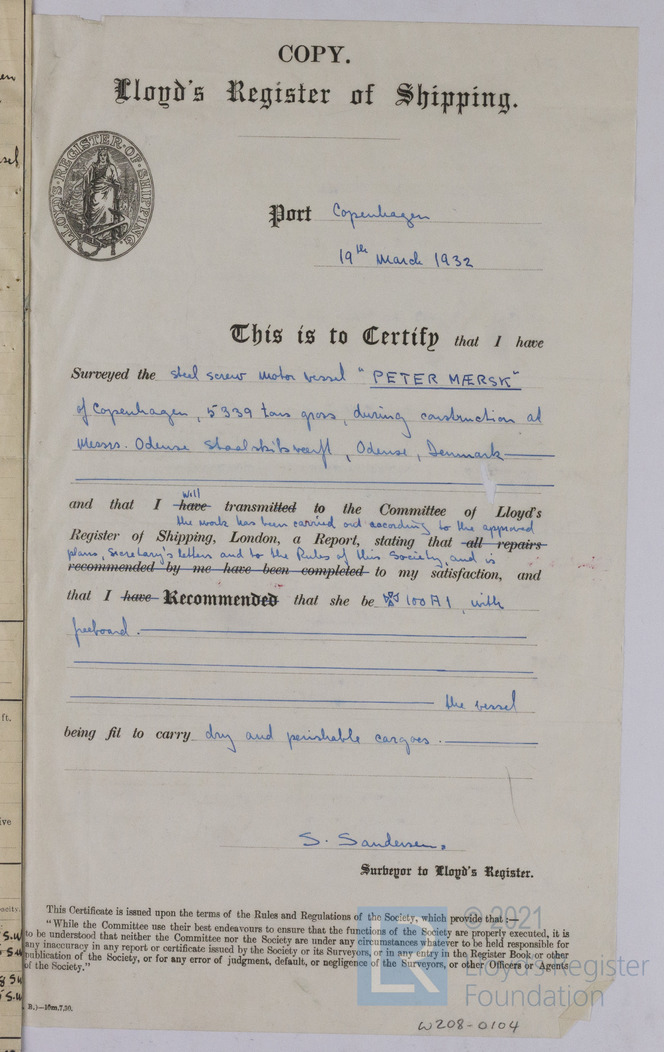 COPY.
Lloyd's Register of Shipping.
LLOYD'S·REGISTER·OF·SHIPPING.
Port Copenhagen
19th March 1932
This is to Certify that I have
Surveyed the steel screw motor vessel "PETER MÆRSK"
of Copenhagen, 5339 tons gross, during construction at
Messrs. Odense Staalskibsværft, Odense, Denmark
will
and that I have transmitted to the Committee of Lloyd's
the work has been carried out according to the approved
Register of Shipping, London, a Report, stating that all repairs
plans, Secretary's letters and to the Rules of this Society, and is
recommended by me have been completed to my satisfaction, and
that I have Recommended that she be 100A1, with
freeboard.
the vessel
being fit to carry dry and perishable cargoes.
S. Sandersen.
Surveyor to Lloyd's Register.
This Certificate is issued upon the terms of the Rules and Regulations of the Society, which provide that :—
"While the Committee use their best endeavours to ensure that the functions of the Society are properly executed, it is
to be understood that neither the Committee nor the Society are under any circumstances whatever to be held responsible for
any inaccuracy in any report or certificate issued by the Society or its Surveyors, or in any entry in the Register Book or other
publication of the Society, or for any error of judgment, default, or negligence of the Surveyors, or other Officers or Agents
of the Society."
B.)—10m,7,30.
W208-0104
© 2021
LR
Lloyd's Register
Foundation
ft.